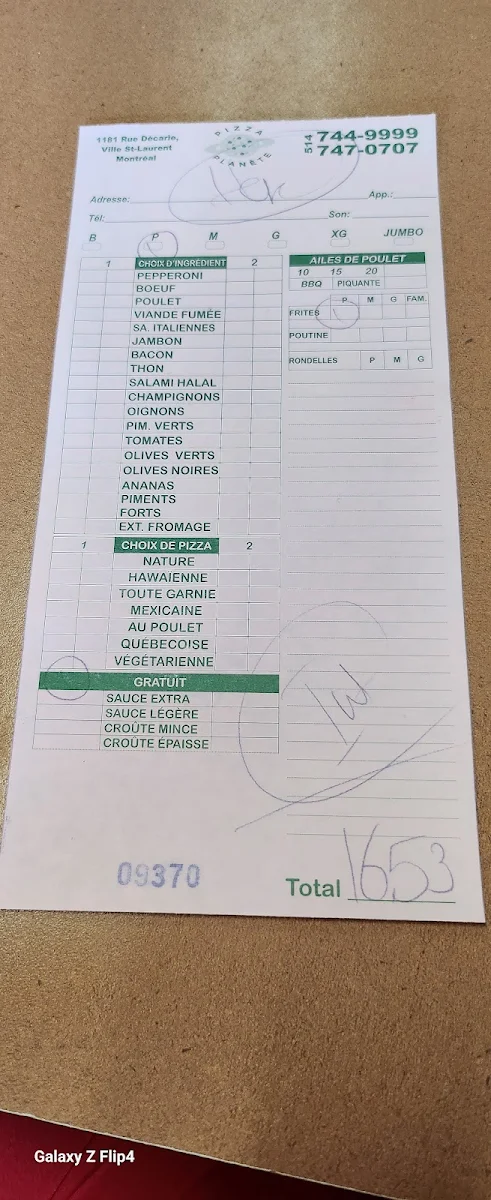 1181 Rue Décarie,
Ville St-Laurent
Montréal
PIZZA
PLANÈTE
514 744-9999
747-0707
Adresse: App.:
Tél: Son:
B P M G XG JUMBO
1 CHOIX D'INGRÉDIENT 2
PEPPERONI
BOEUF
POULET
VIANDE FUMÉE
SA. ITALIENNES
JAMBON
BACON
THON
SALAMI HALAL
CHAMPIGNONS
OIGNONS
PIM. VERTS
TOMATES
OLIVES VERTS
OLIVES NOIRES
ANANAS
PIMENTS
FORTS
EXT. FROMAGE
1 CHOIX DE PIZZA 2
NATURE
HAWAIENNE
TOUTE GARNIE
MEXICAINE
AU POULET
QUÉBECOISE
VÉGÉTARIENNE
GRATUIT
SAUCE EXTRA
SAUCE LÉGÈRE
CROÛTE MINCE
CROÛTE ÉPAISSE
AILES DE POULET
10 15 20
BBQ PIQUANTE
P M G FAM.
FRITES
POUTINE
RONDELLES P M G
09370
Total 1653
Galaxy Z Flip4